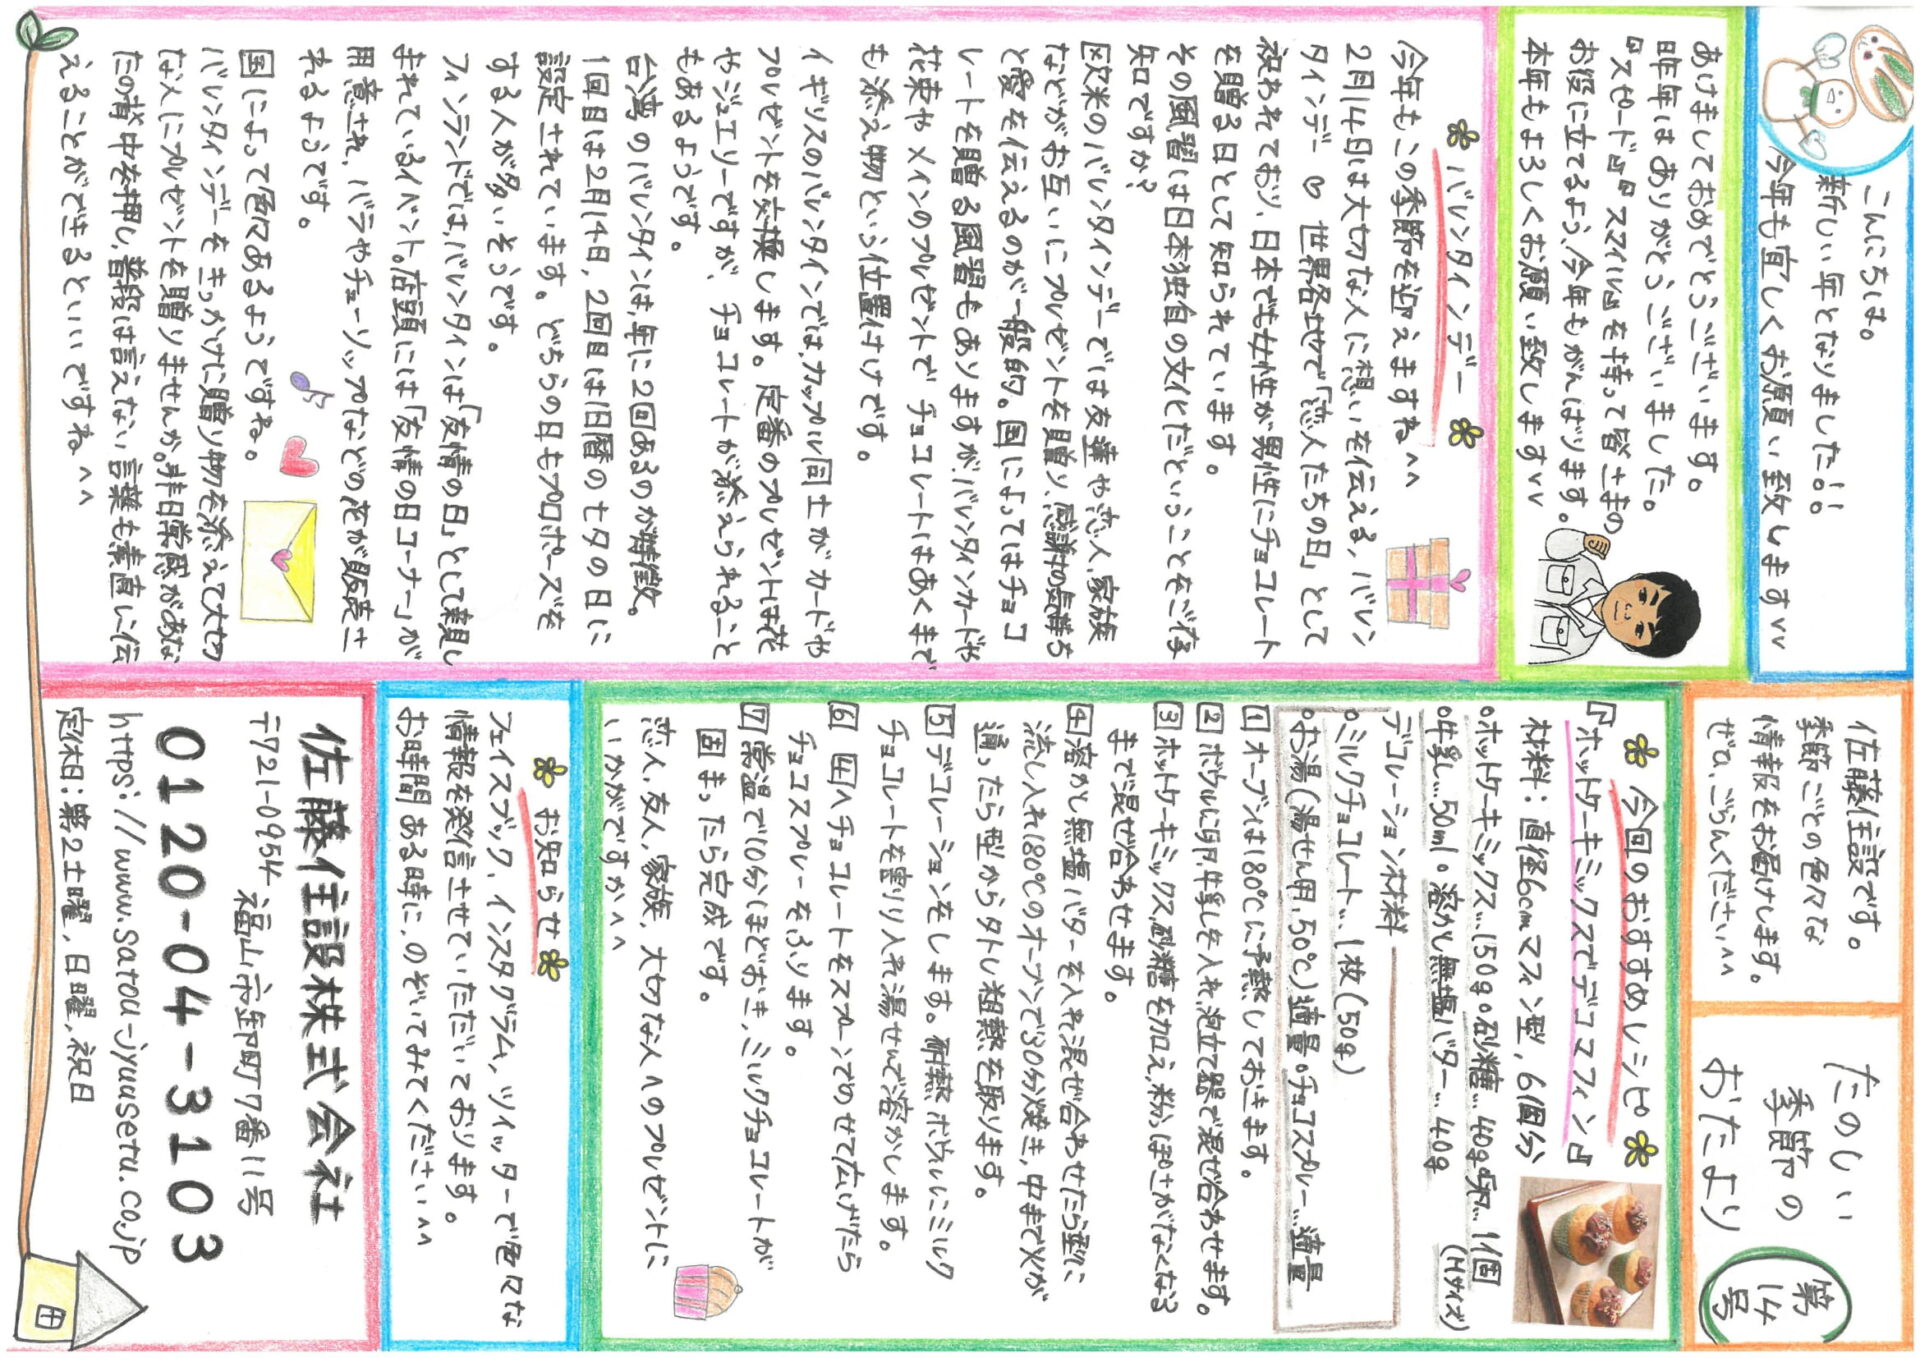 こんにちは。
新しい年となりました!!
今年も宜しくお願い致しますvv
あけましておめでとうございます。
昨年はありがとうございました。
『スピード』『スマイル』を持って皆さまの
お役に立てるよう、今年もがんばります。
本年もよろしくお願い致しますvv
バレンタインデー
今年もこの季節を迎えますね^^
2月14日は大切な人に想いを伝える、バレン
タインデー。世界各地で「恋人たちの日」として
祝われており、日本でも女性が男性にチョコレート
を贈る日として知られています。
その風習は日本独自の文化だということをご存
知ですか?
欧米のバレンタインデーでは友達や恋人、家族
などがお互いにプレゼントを贈り、感謝の気持ち
と愛を伝えるのが一般的。国によってはチョコ
レートを贈る風習もありますが、バレンタインカードや
花束やメインのプレゼントでチョコレートはあくまで
も添え物という位置付けです。
イギリスのバレンタインでは、カップル同士がカードや
プレゼントを交換します。定番のプレゼントは花
やジュエリーですが、チョコレートが添えられること
もあるようです。
台湾のバレンタインは、年に2回あるのが特徴。
1回目は2月14日、2回目は旧暦の七夕の日に
設定されています。どちらの日もプロポーズを
する人が多いそうです。
フィンランドでは、バレンタインは「友情の日」として親し
まれているイベント。店頭には「友情の日コーナー」が
用意され、バラやチューリップなどの花が販売さ
れるようです。
国によって色々あるようですね。
バレンタインデーをきっかけに贈り物を添えて大切
な人にプレゼントを贈りませんか。非日常感があな
たの背中を押し、普段は言えない言葉も素直に伝
えることができるといいですね^^
佐藤住設です。
季節ごとの色々な
情報をお届けします。
ぜひ、ごらんください^^
たのしい
季節の
おたより
第14号
今回のおすすめレシピ
『ホットケーキミックスでデコマフィン』
材料：直径6cmマフィン型，6個分
○ホットケーキミックス…150g○砂糖…40g○卵…1個
(Mサイズ)
○牛乳…50ml○溶かし無塩バター…40g
デコレーション材料
○ミルクチョコレート…1枚(50g)
○お湯(湯せん用、50℃)適量○チョコスプレー…適量
1 オーブンは180℃に予熱しておきます。
2 ボウルに卵、牛乳を入れ、泡立て器で混ぜ合わせます。
3 ホットケーキミックス、砂糖を加え、粉っぽさがなくなる
まで混ぜ合わせます。
4 溶かし無塩バターを入れ混ぜ合わせたら型に
流し入れ180℃のオーブンで30分焼き、中まで火が
通ったら型から外し粗熱を取ります。
5 デコレーションをします。耐熱ボウルにミルク
チョコレートを割り入れ湯せんで溶かします。
6 4へチョコレートをスプーンでのせて広げたら
チョコスプレーをふります。
7 常温で10分ほどおき、ミルクチョコレートが
固まったら完成です。
恋人、友人、家族、大切な人へのプレゼントに
いかがですか^^
お知らせ
フェイスブック、インスタグラム、ツイッターで色々な
情報を発信させていただいております。
お時間ある時に、のぞいてみてください^^
佐藤住設株式会社
〒721-0954 福山市卸町7番11号
0120-04-3103
https://www.satou-jyuusetu.co.jp
定休日：第2土曜，日曜，祝日